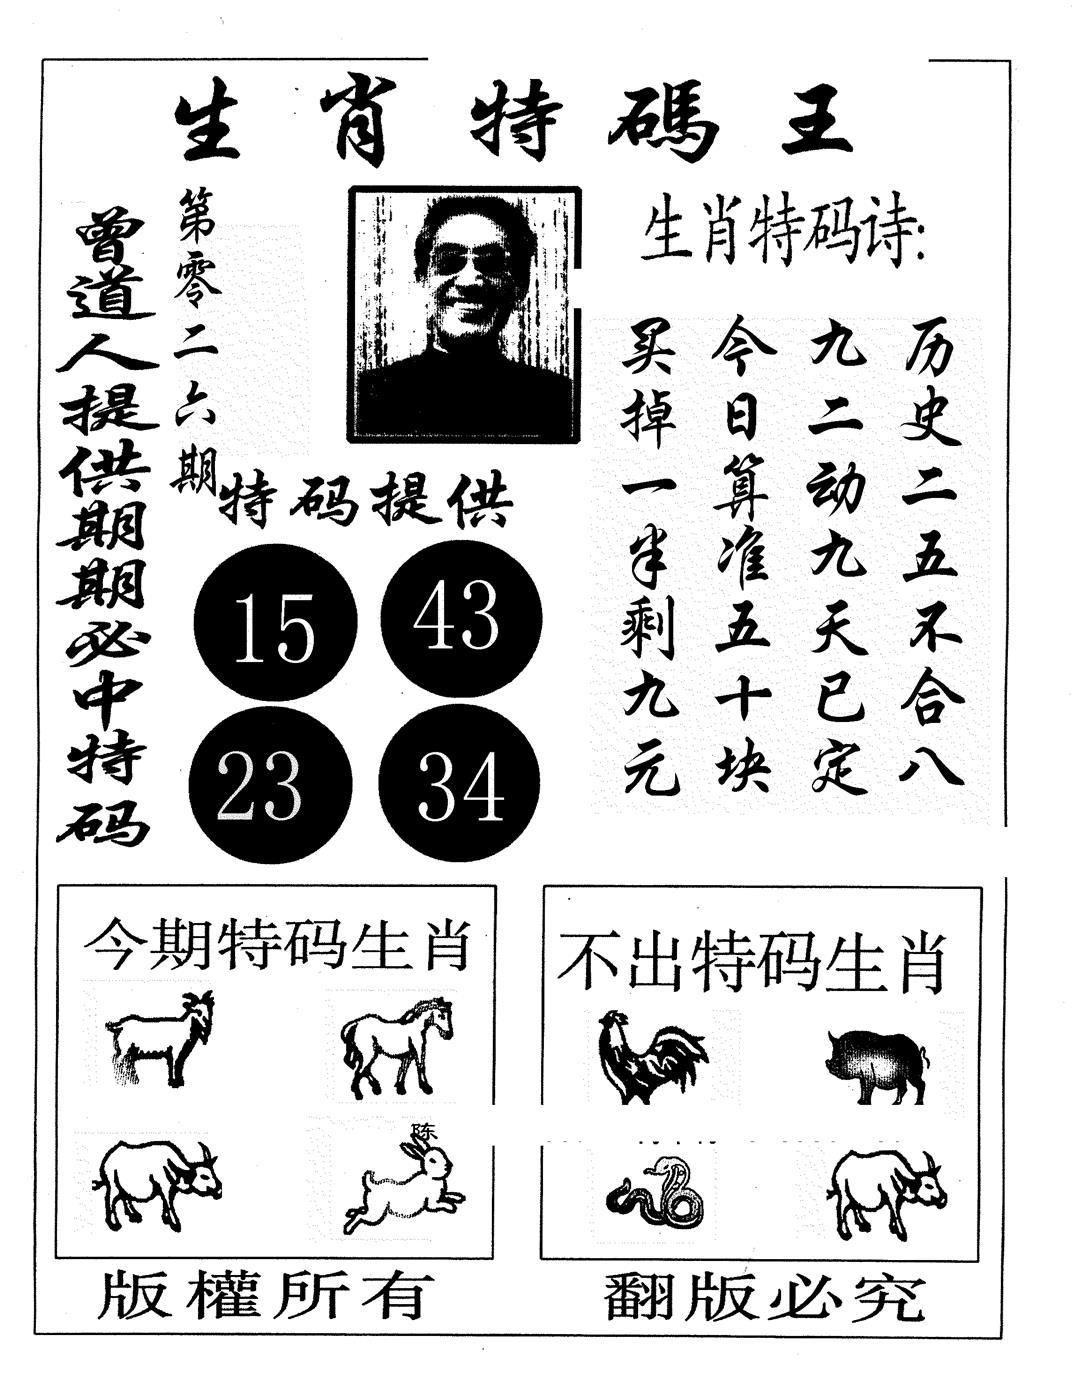 生肖特碼王
曾道人提供期期必中特码
第零二六期
特码提供
15
43
23
34
生肖特码诗:
历史二五不合八
九二动九天已定
今日算准五十块
买掉一半剩九元
今期特码生肖
陈
不出特码生肖
版權所有
翻版必究